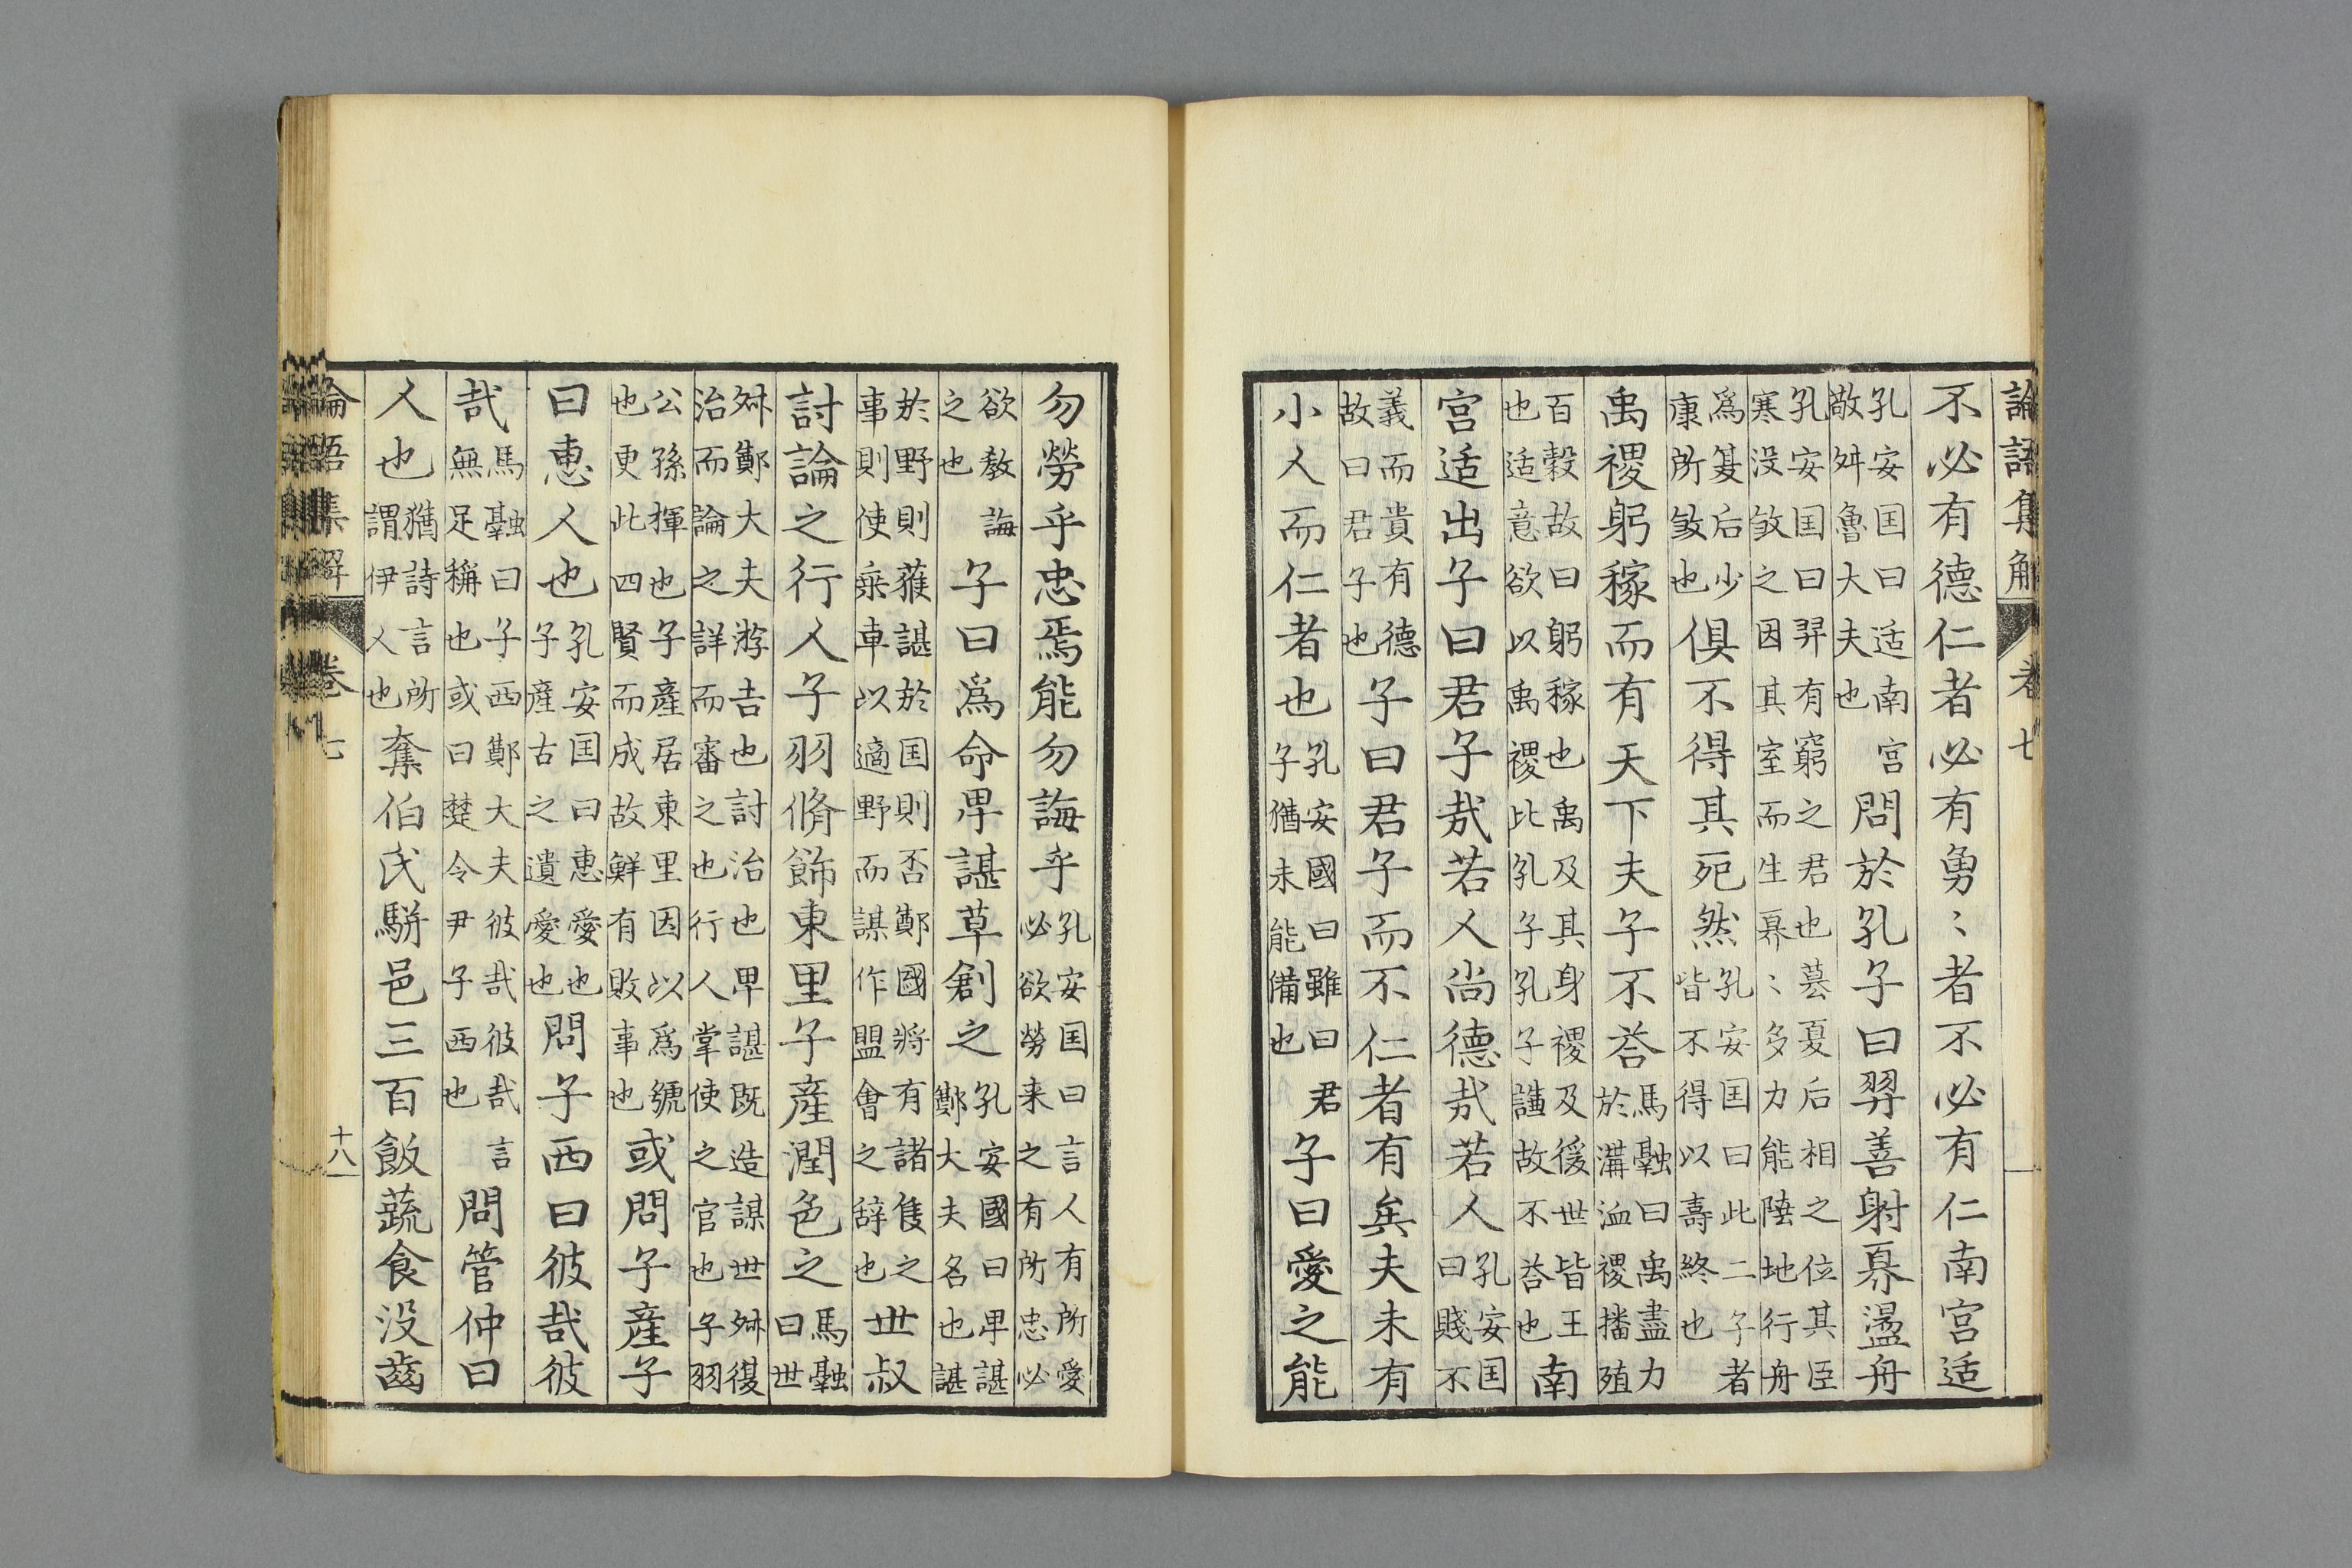 論語集解 卷七
不必有德仁者必有勇〻者不必有仁南宫适
孔安囯曰适南宫敬叔魯大夫也問於孔子曰羿善射奡盪舟
孔安囯曰羿有窮之君也簒夏后相之位其臣寒浞殺之因其室而生奡〻多力能陸地行舟
爲夏后少康所殺也俱不得其死然孔安囯曰此二子者皆不得以壽終也
禹稷躬稼而有天下夫子不荅馬融曰禹盡力於溝洫稷播殖
百穀故曰躬稼也禹及其身稷及後世皆王也适意欲以禹稷比孔子孔子謙故不荅也南
宫适出子曰君子哉若人尚德哉若人孔安囯曰賤不
義而貴有德故曰君子也子曰君子而不仁者有矣夫未有
小人而仁者也孔安國曰雖曰君子猶未能備也子曰愛之能
勿勞乎忠焉能勿誨乎孔安囯曰言人有所愛必欲勞来之有所忠必
欲教誨之也子曰爲命卑諶草創之孔安國曰卑諶鄭大夫名也諶
於野則獲諶於囯則否鄭國將有諸侯之事則使乗車以適野而謀作盟會之辞也世叔
討論之行人子羽脩飾東里子産潤色之馬融曰世
叔鄭大夫游吉也討治也卑諶既造謀世叔復治而論之詳而審之也行人掌使之官也子羽
公孫揮也子産居東里因以爲號也更此四賢而成故鮮有敗事也或問子産子
曰惠人也孔安囯曰惠愛也子産古之遺愛也問子西曰彼哉彼
哉馬融曰子西鄭大夫彼哉彼哉言無足稱也或曰楚令尹子西也問管仲曰
人也猶詩言所謂伊人也奪伯氏駢邑三百飯蔬食没齒
論語集解 卷七 十八